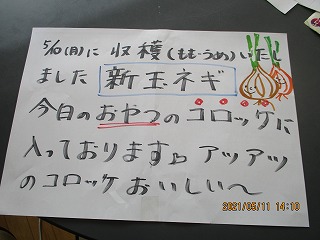 5/10(月)に 収穫(もも・うめ)いたし
ました 新玉ネギ
今日のおやつのコロッケに
入っております♪ アツアツ
のコロッケ おいしい〜
2021/05/11 14:10